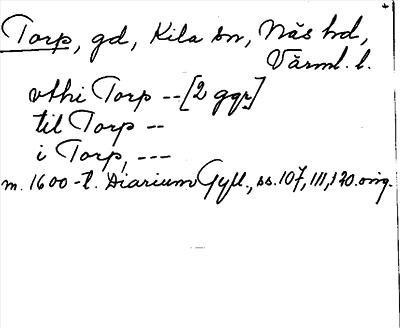 Torp, gd, Kila sn, Näs hd,
Värml. l.
vthi Torp -- [2 ggr]
til Torp --
i Torp, ---
m. 1600-t. Diarium Gyll., ss. 107, 111, 120. orig.